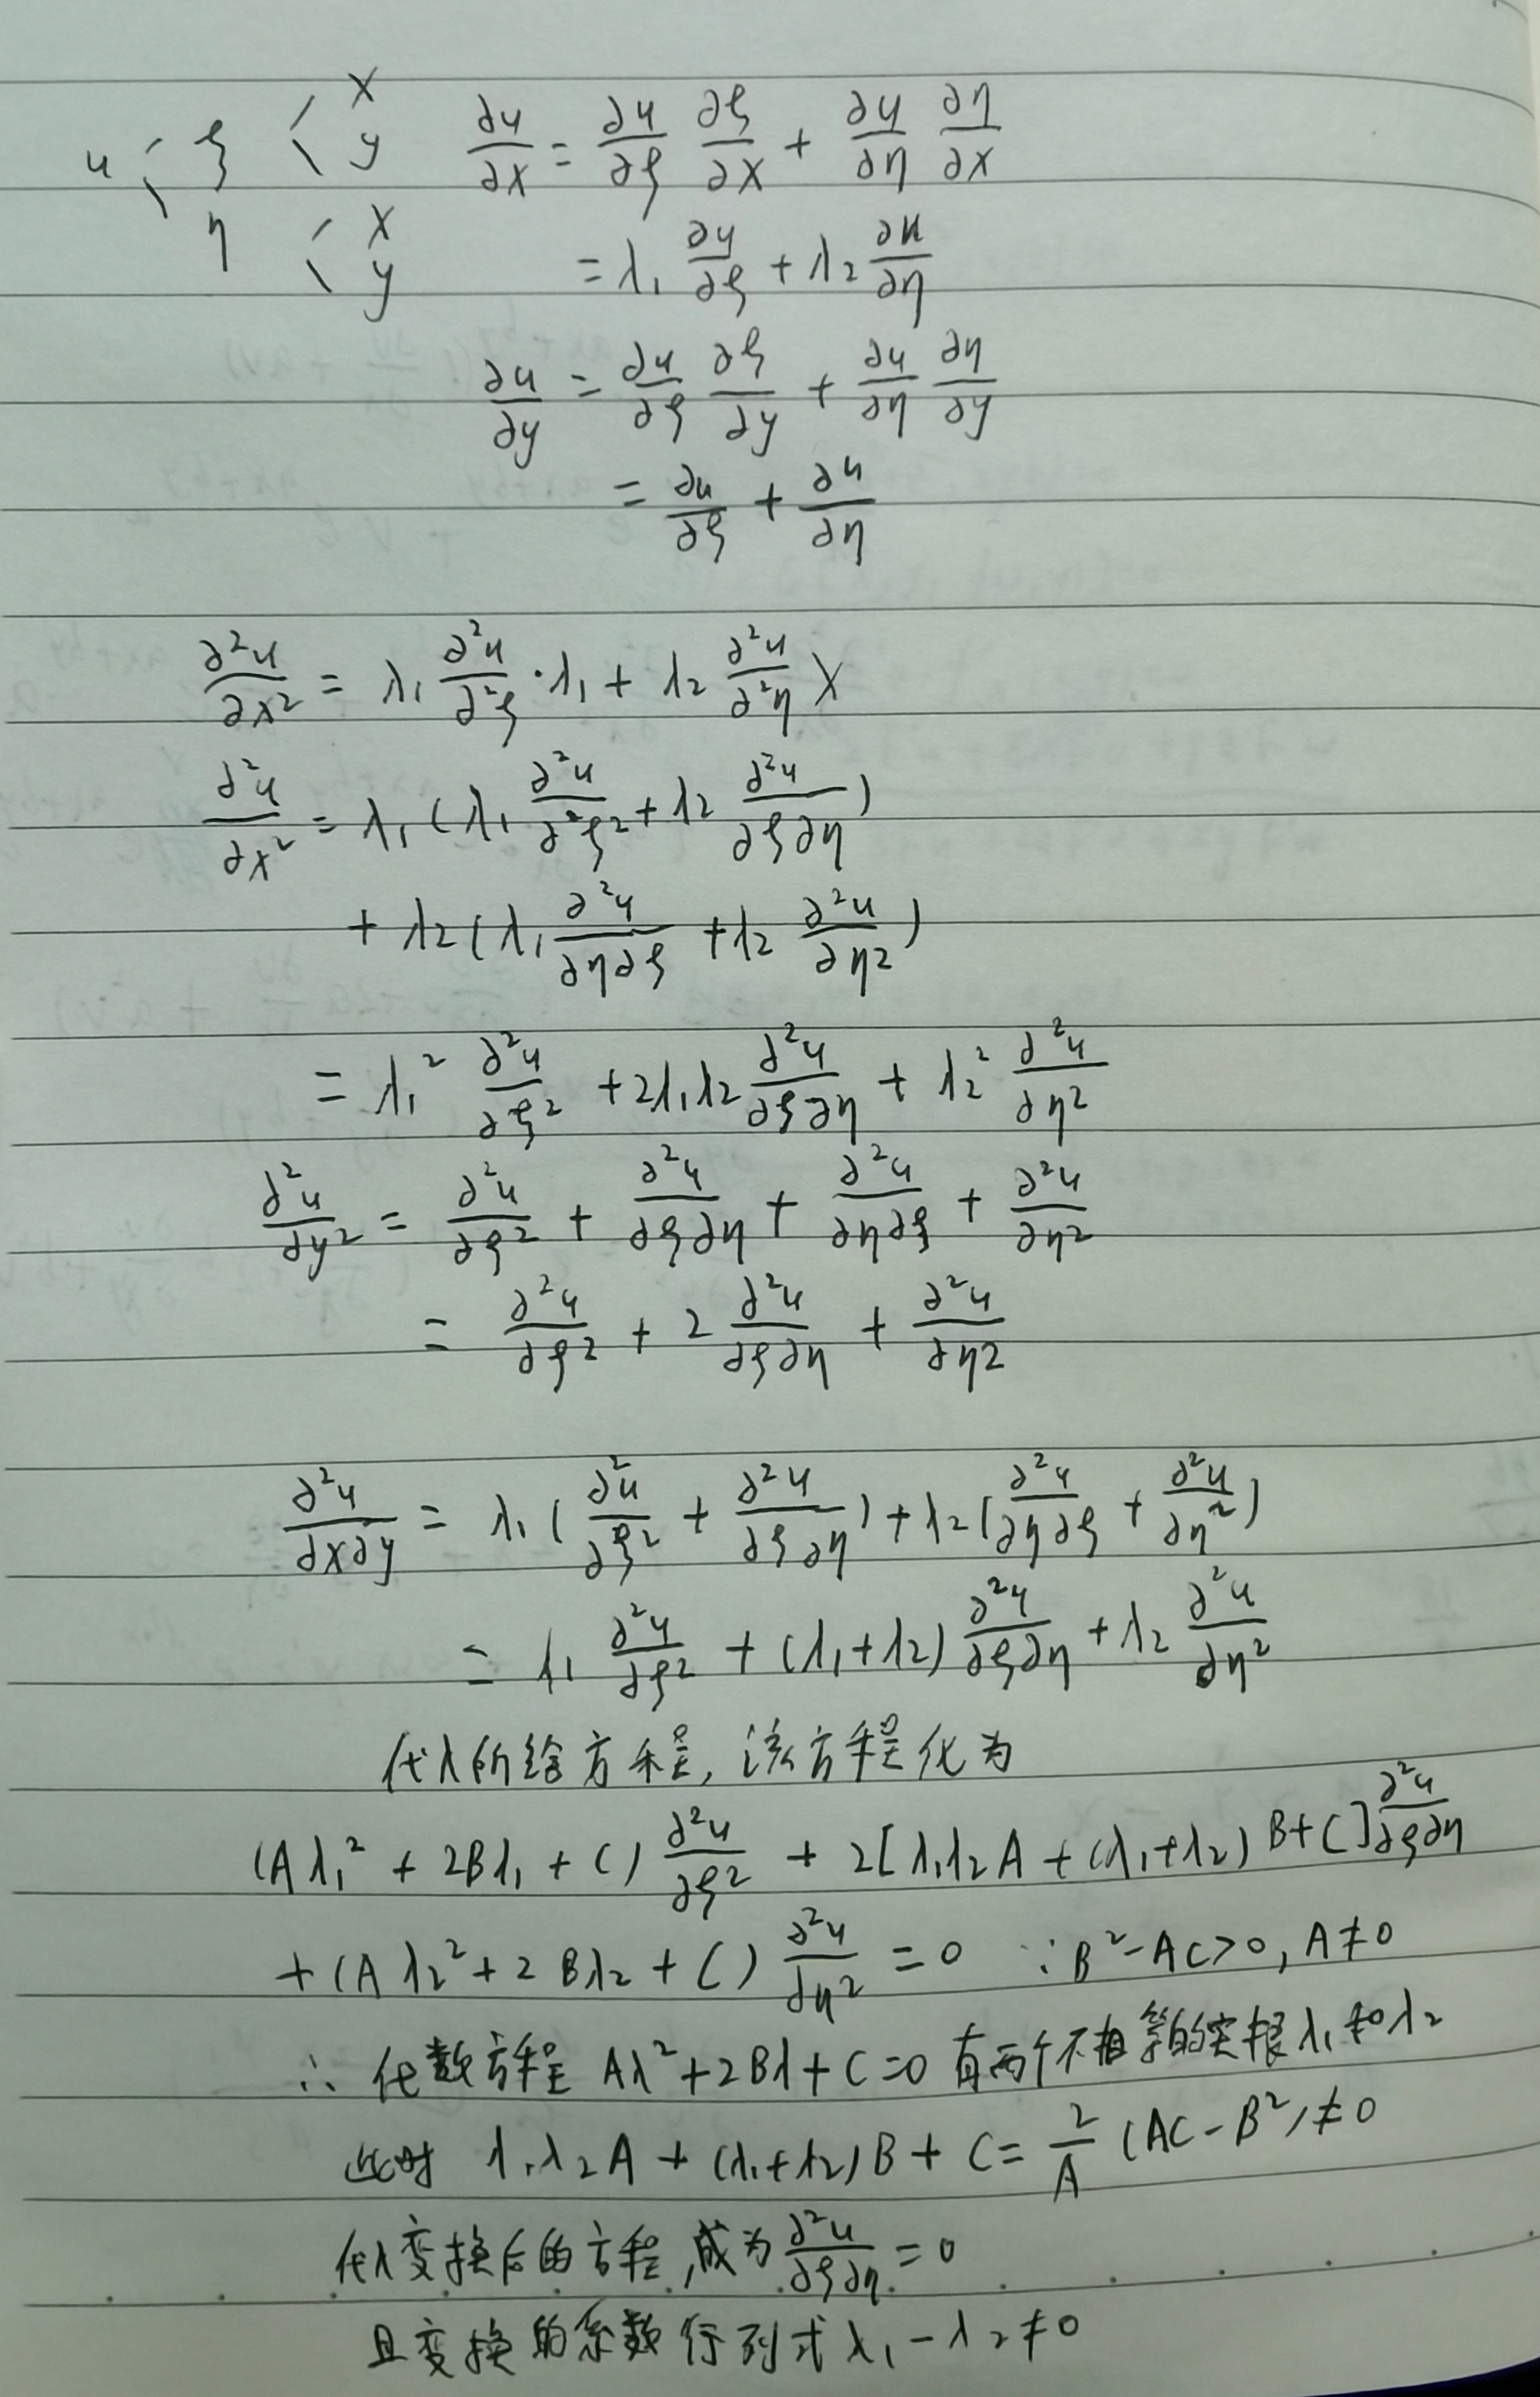 u ξ x y ∂u/∂x = ∂u/∂ξ ∂ξ/∂x + ∂u/∂η ∂η/∂x
η x y = λ₁ ∂u/∂ξ + λ₂ ∂u/∂η
∂u/∂y = ∂u/∂ξ ∂ξ/∂y + ∂u/∂η ∂η/∂y
= ∂u/∂ξ + ∂u/∂η
∂²u/∂x² = λ₁ ∂²u/∂²ξ · λ₁ + λ₂ ∂²u/∂²η X
∂²u/∂x² = λ₁(λ₁ ∂²u/∂²ξ² + λ₂ ∂²u/∂ξ∂η)
+ λ₂(λ₁ ∂²u/∂η∂ξ + λ₂ ∂²u/∂η²)
= λ₁² ∂²u/∂ξ² + 2λ₁λ₂ ∂²u/∂ξ∂η + λ₂² ∂²u/∂η²
∂²u/∂y² = ∂²u/∂ξ² + ∂²u/∂ξ∂η + ∂²u/∂η∂ξ + ∂²u/∂η²
= ∂²u/∂ξ² + 2 ∂²u/∂ξ∂η + ∂²u/∂η²
∂²u/∂x∂y = λ₁(∂²u/∂ξ² + ∂²u/∂ξ∂η) + λ₂(∂²u/∂η∂ξ + ∂²u/∂η²)
= λ₁ ∂²u/∂ξ² + (λ₁+λ₂) ∂²u/∂ξ∂η + λ₂ ∂²u/∂η²
代入所给方程, 该方程化为
(Aλ₁² + 2Bλ₁ + C) ∂²u/∂ξ² + 2[λ₁λ₂A + (λ₁+λ₂)B + C] ∂²u/∂ξ∂η
+ (Aλ₂² + 2Bλ₂ + C) ∂²u/∂η² = 0 ∵ B²-AC>0, A≠0
∴ 代数方程 Aλ²+2Bλ+C=0 有两个不相等的实根λ₁和λ₂
此时 λ₁λ₂A + (λ₁+λ₂)B + C = 2/A (AC-B²) ≠ 0
代入变换后的方程, 成为 ∂²u/∂ξ∂η = 0
且变换的系数行列式 λ₁-λ₂≠0